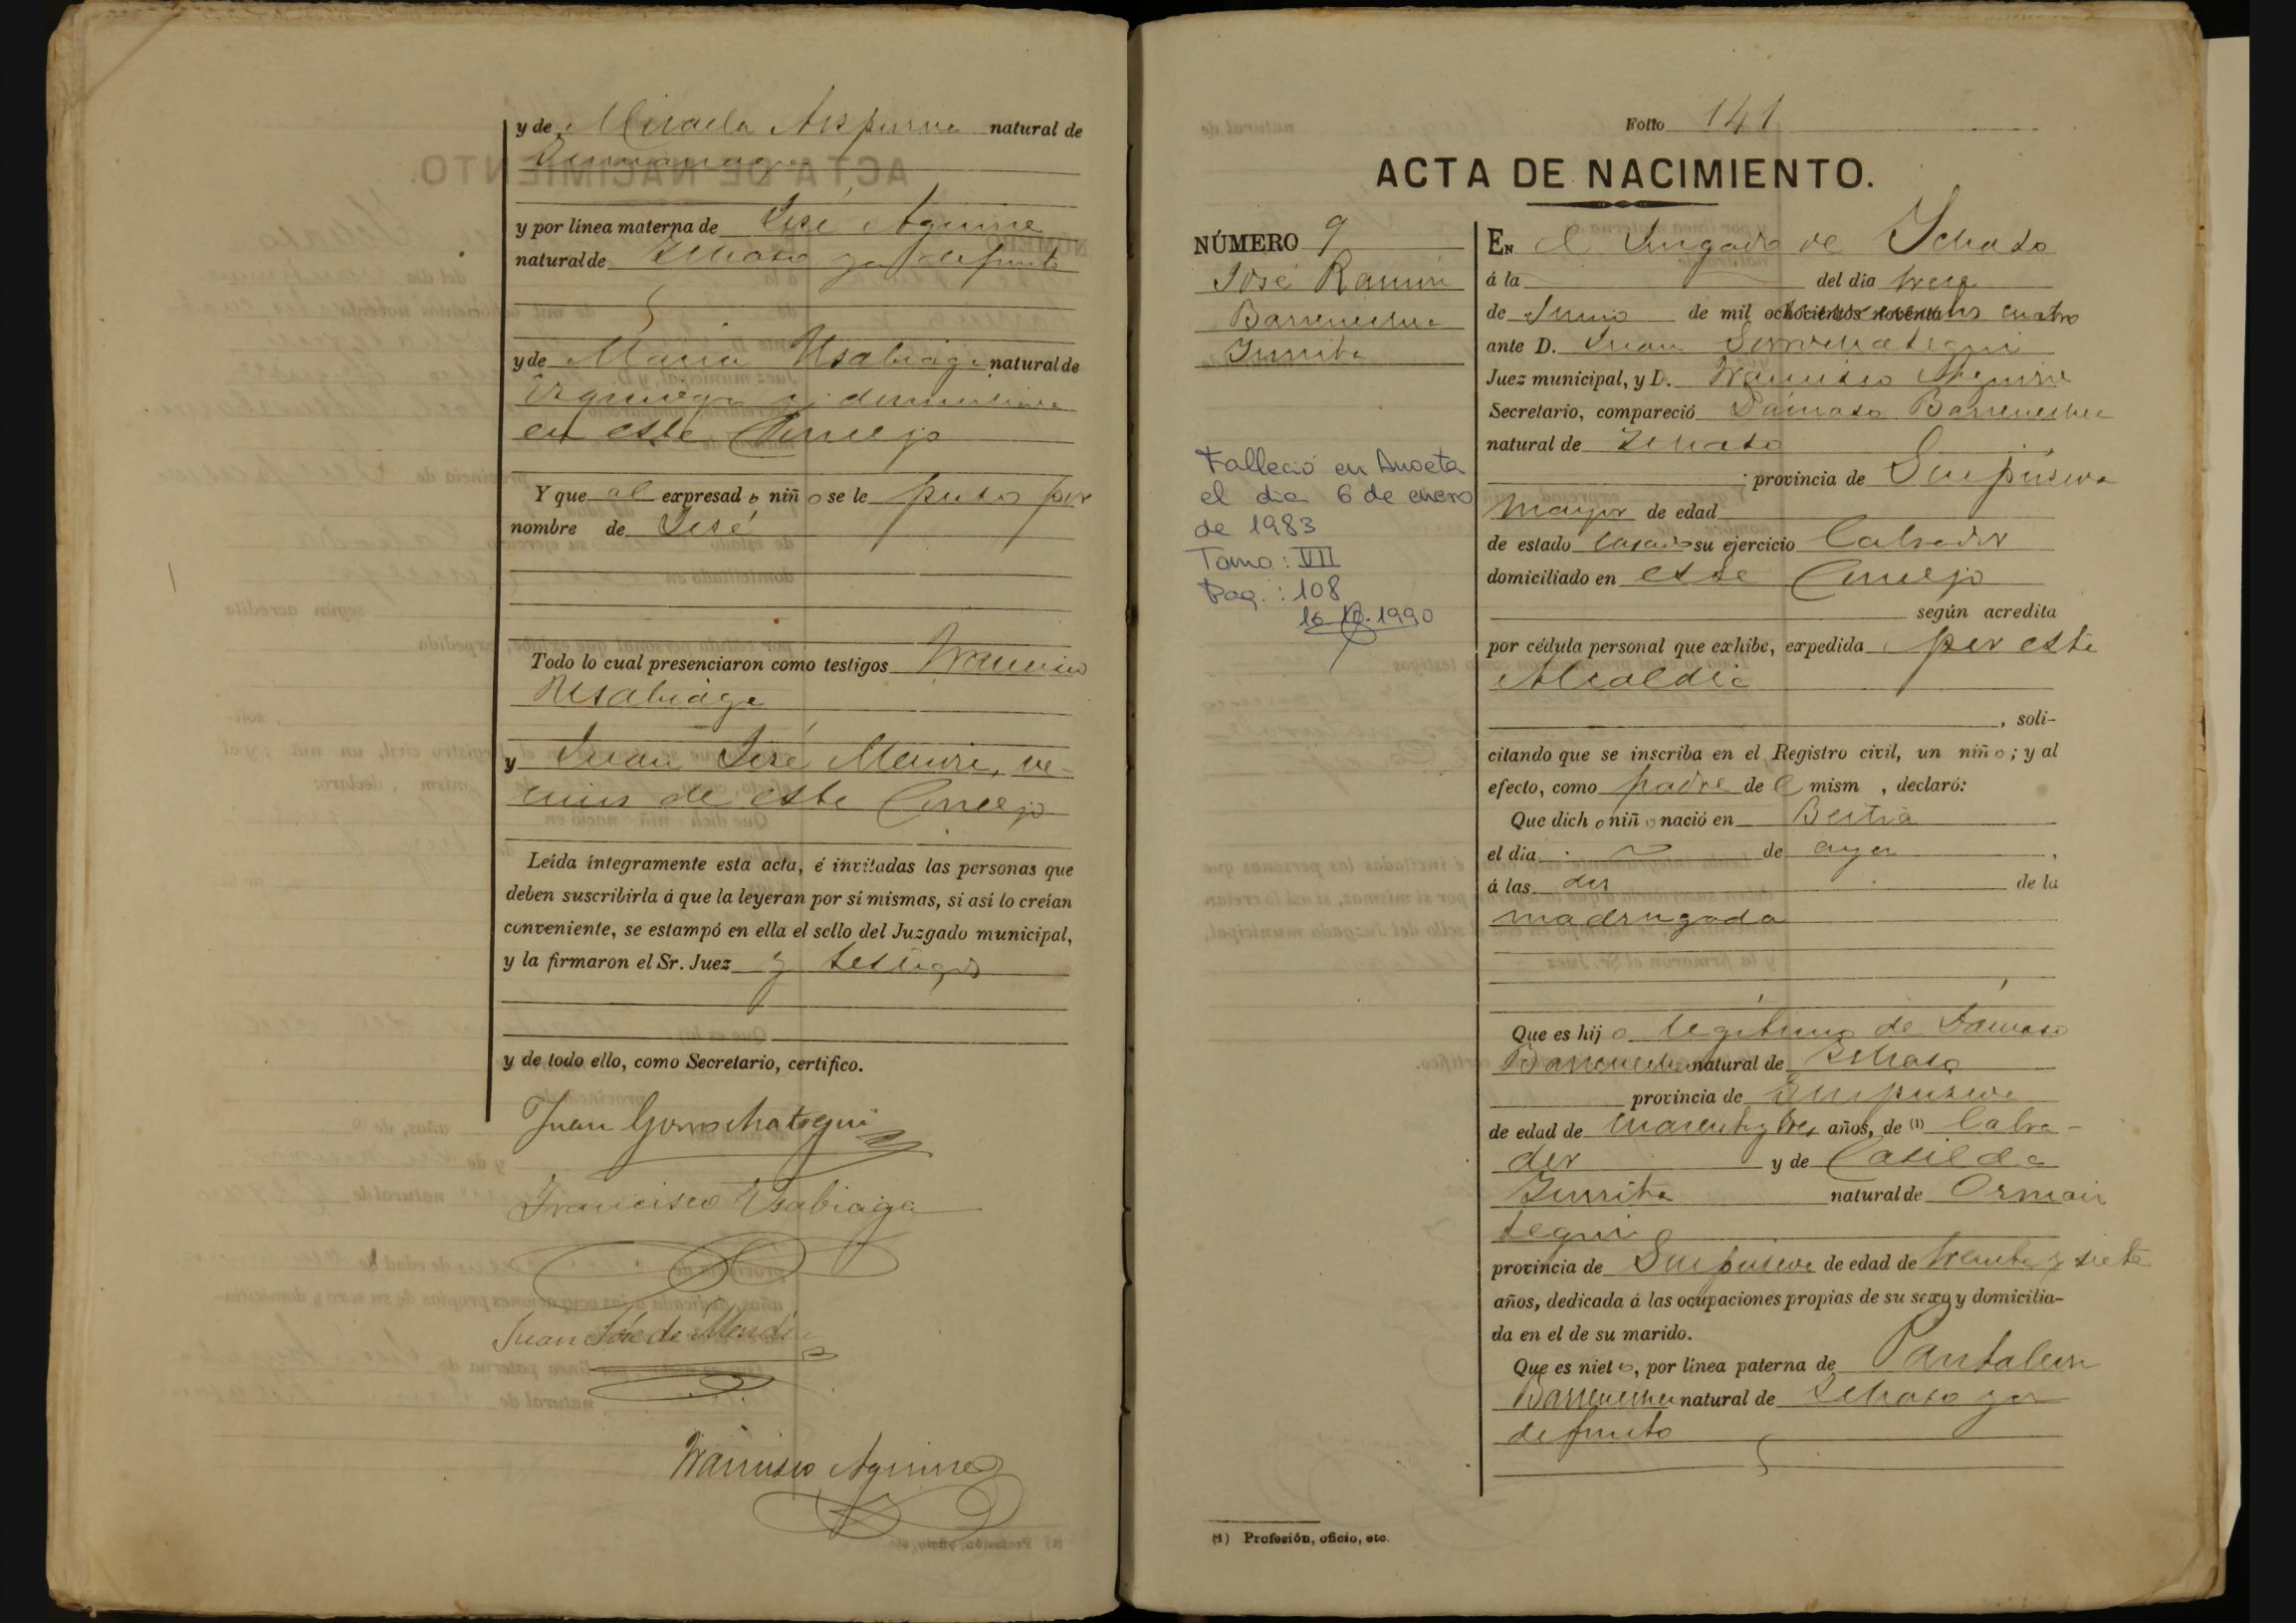 y de Micaela Aizpurua natural de
y por linea materna de José Aguirre
natural de Ichaso ya difunto
y de Maria Usabiaga natural de
Ezquioga y
en este Concejo
Y que al expresado niño se le puso por
nombre de José
Todo lo cual presenciaron como testigos Francisco
Usabiaga
y Juan José ve-
cinos de este Concejo
Leída íntegramente esta acta, é invitadas las personas que
deben suscribirla á que la leyeran por sí mismas, si así lo creían
conveniente, se estampó en ella el sello del Juzgado municipal,
y la firmaron el Sr. Juez y testigos
y de todo ello, como Secretario, certifico.
Juan Gorrochategui
Francisco Usabiaga
Juan José de Mendia
Francisco Aguirre
Folio 141
ACTA DE NACIMIENTO.
NÚMERO 9
José Ramón
Barrenechea
Iturrita
Falleció en Anoeta
el dia 6 de enero
de 1983
Tomo: VII
Pag.: 108
16.10.1990
En el Juzgado de Ichaso
á la del dia trece
de Junio de mil ochocientos noventa cuatro
ante D. Juan Gorrochategui
Juez municipal, y D. Francisco Aguirre
Secretario, compareció Dámaso Barrenechea
natural de Ichaso
provincia de Guipúzcoa
mayor de edad
de estado casado su ejercicio labrador
domiciliado en este Concejo
según acredita
por cédula personal que exhibe, expedida por esta
Alcaldia
, soli-
citando que se inscriba en el Registro civil, un niño; y al
efecto, como padre del mism , declaró:
Que dicho niño nació en
el dia de ayer
á las dos de la
madrugada
Que es hijo legítimo de Damaso
Barrenechea natural de Ichaso
provincia de Guipuzcoa
de edad de cuarenta y tres años, de (1) labra-
dor y de Casilda
Iturrita natural de Ormaiz
tegui
provincia de Guipuzcoa de edad de treinta y siete
años, dedicada á las ocupaciones propias de su sexo y domicilia-
da en el de su marido.
Que es nieto, por linea paterna de Pantaleon
Barrenechea natural de Ichaso ya
difunto
(1) Profesión, oficio, etc.